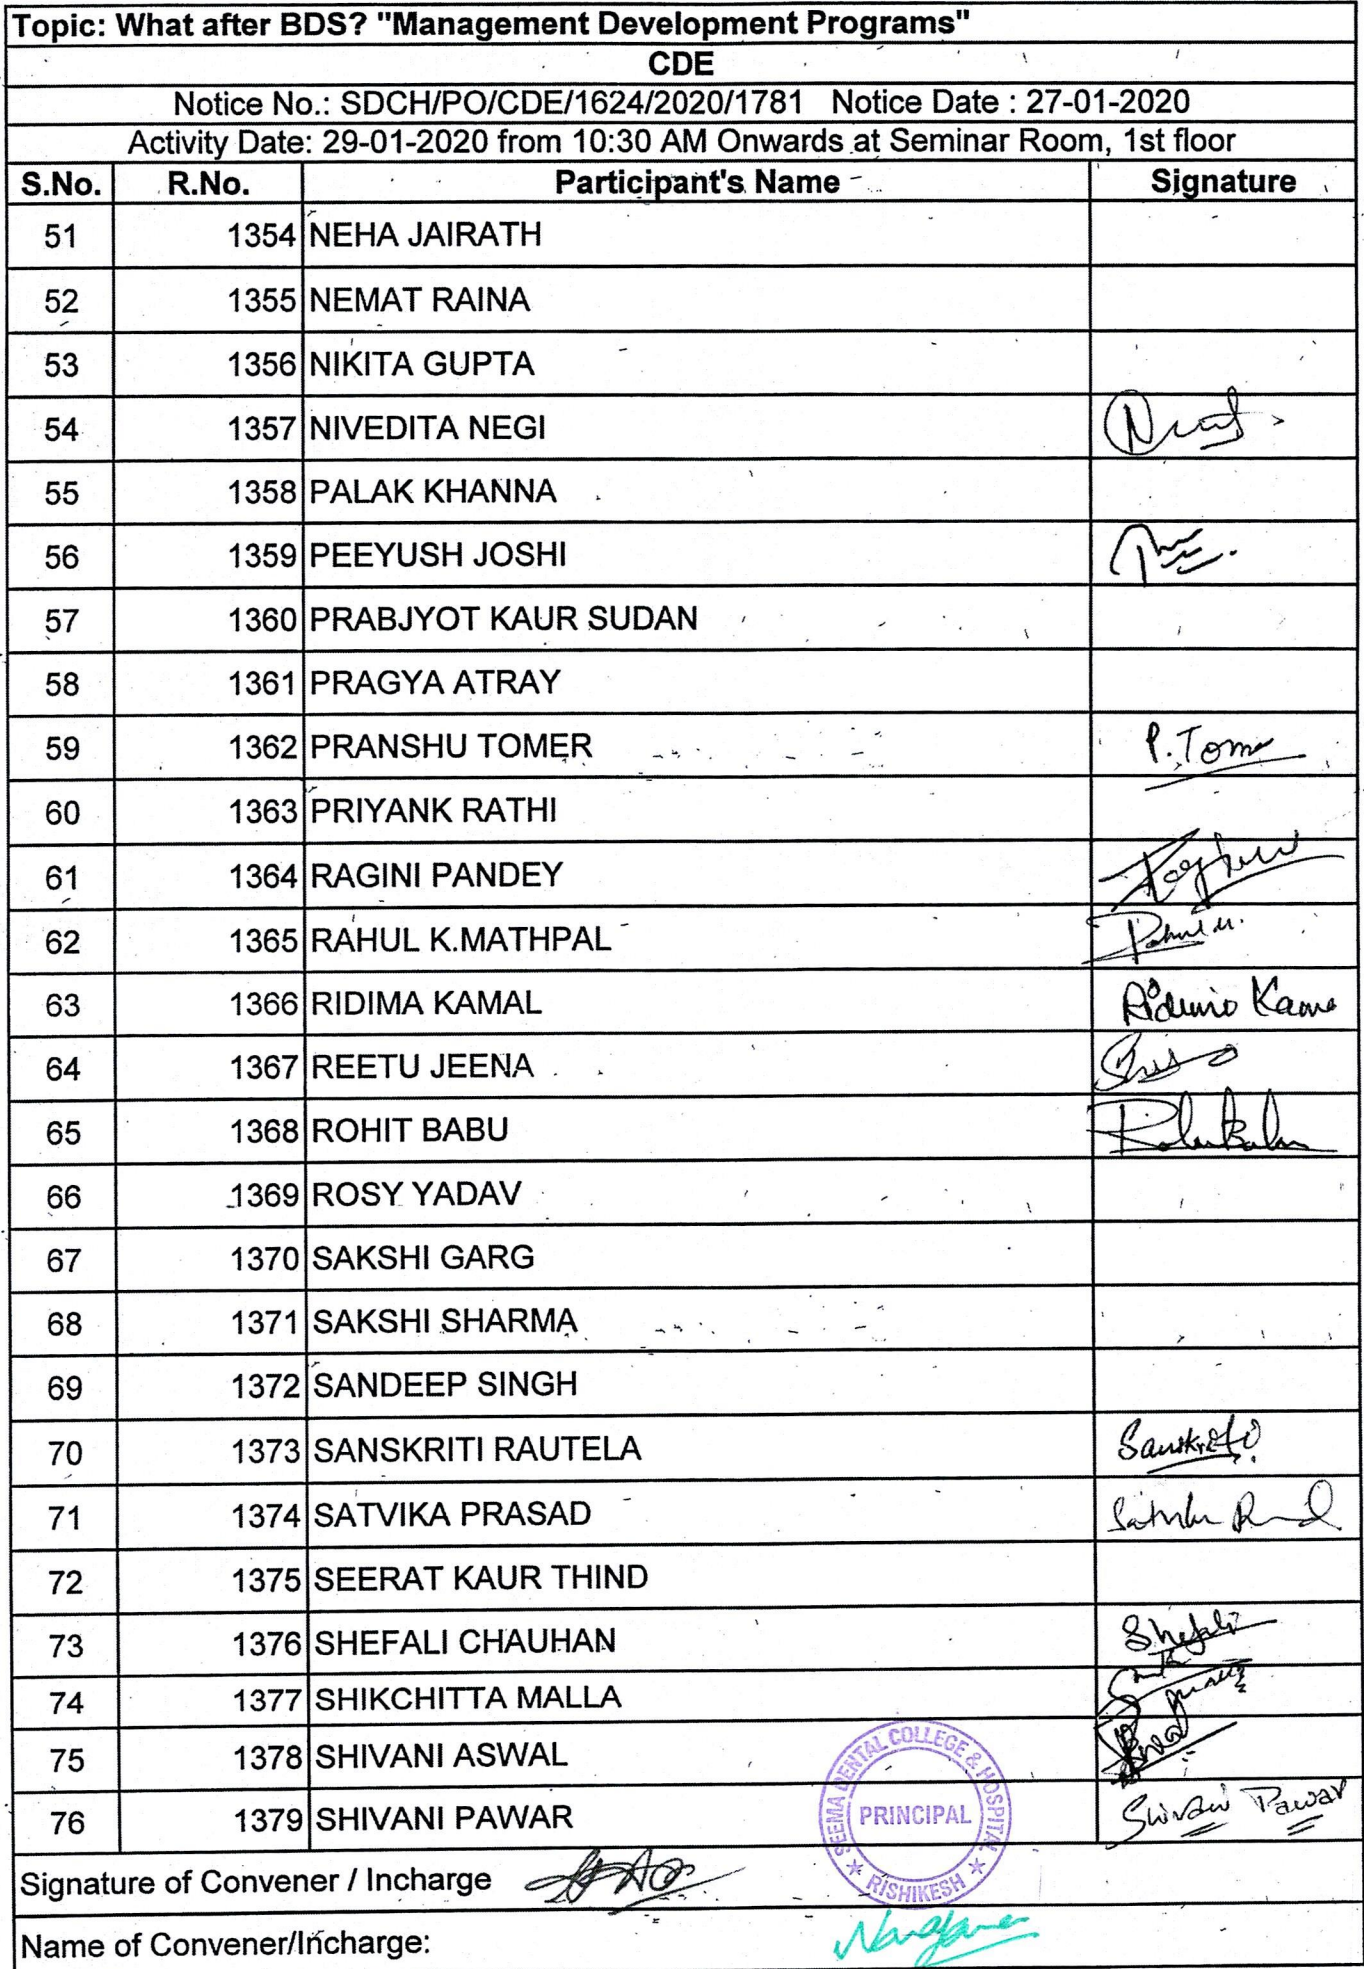 Topic: What after BDS? "Management Development Programs"
CDE
Notice No.: SDCH/PO/CDE/1624/2020/1781 Notice Date : 27-01-2020
Activity Date: 29-01-2020 from 10:30 AM Onwards at Seminar Room, 1st floor
S.No. R.No. Participant's Name Signature
51 1354 NEHA JAIRATH
52 1355 NEMAT RAINA
53 1356 NIKITA GUPTA
54 1357 NIVEDITA NEGI
55 1358 PALAK KHANNA
56 1359 PEEYUSH JOSHI
57 1360 PRABJYOT KAUR SUDAN
58 1361 PRAGYA ATRAY
59 1362 PRANSHU TOMER P. Tomer
60 1363 PRIYANK RATHI
61 1364 RAGINI PANDEY
62 1365 RAHUL K.MATHPAL Rahul M.
63 1366 RIDIMA KAMAL
64 1367 REETU JEENA
65 1368 ROHIT BABU
66 1369 ROSY YADAV
67 1370 SAKSHI GARG
68 1371 SAKSHI SHARMA
69 1372 SANDEEP SINGH
70 1373 SANSKRITI RAUTELA Sanskriti
71 1374 SATVIKA PRASAD
72 1375 SEERAT KAUR THIND
73 1376 SHEFALI CHAUHAN Shefali
74 1377 SHIKCHITTA MALLA
75 1378 SHIVANI ASWAL
76 1379 SHIVANI PAWAR Shivani Pawar
SEEMA DENTAL COLLEGE & HOSPITAL
PRINCIPAL
RISHIKESH
Signature of Convener / Incharge
Name of Convener/Incharge: